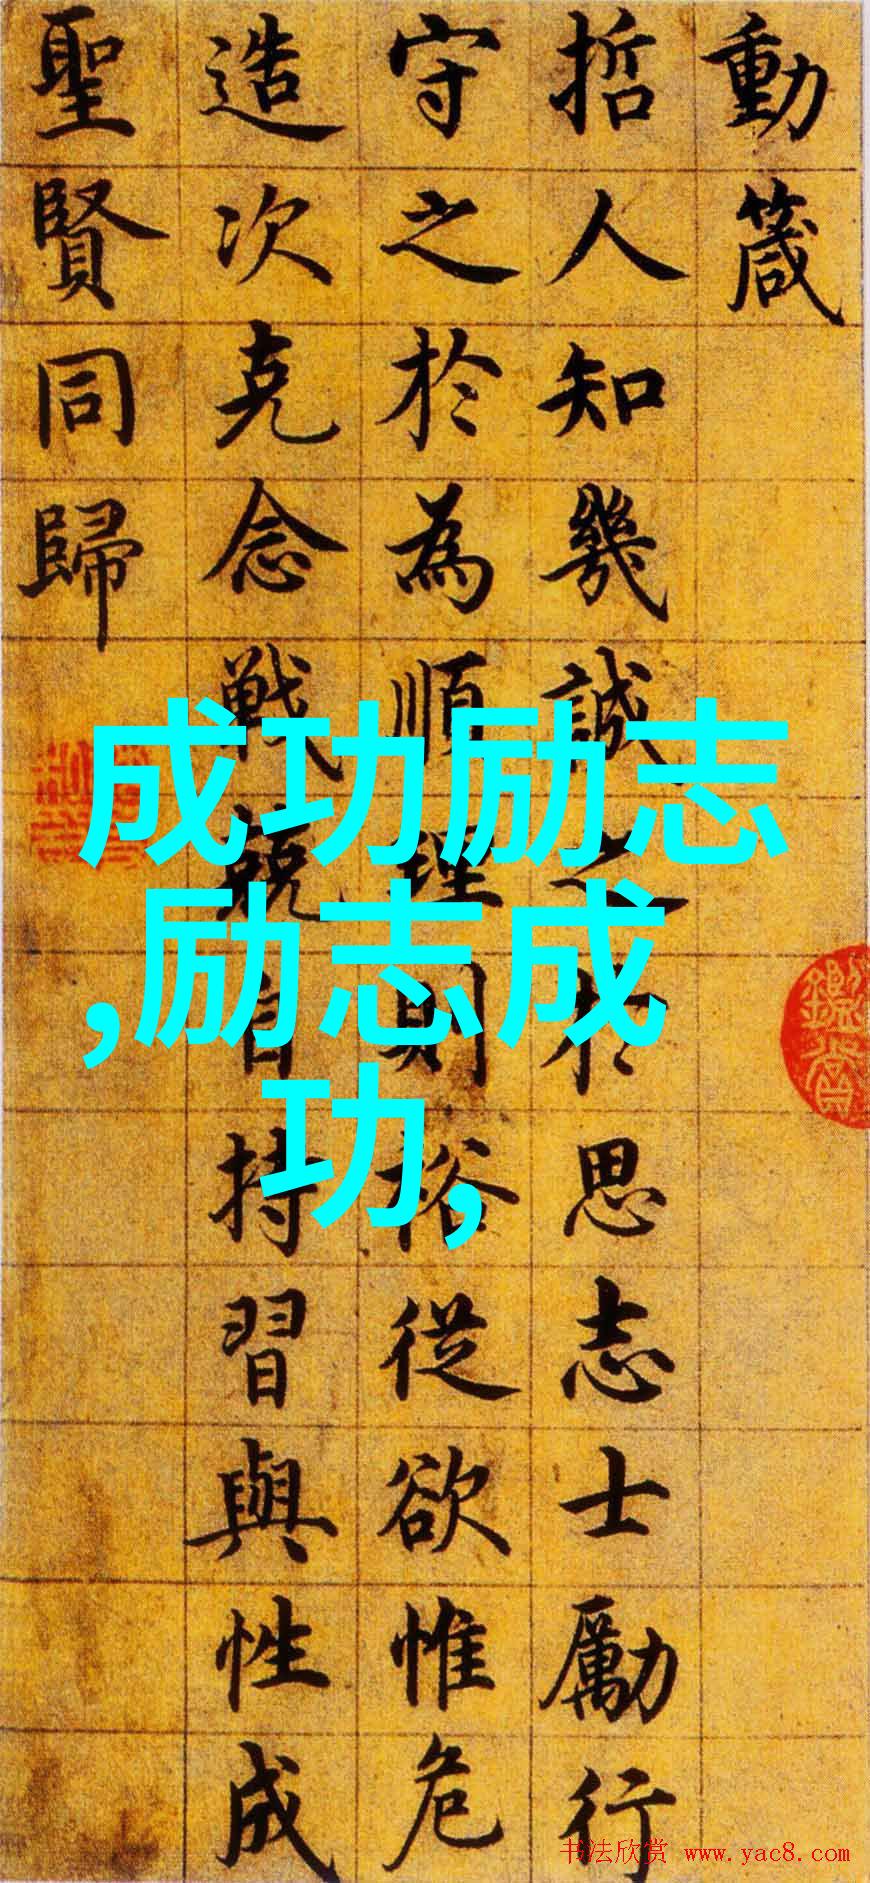 動箴
哲人知幾誠之於思志士勵行
守之於為順理則裕從欲惟危
造次克念戰兢自持習與性成
聖賢同歸
成功励志
,励志成
功,
书法欣赏 www.yac8.com